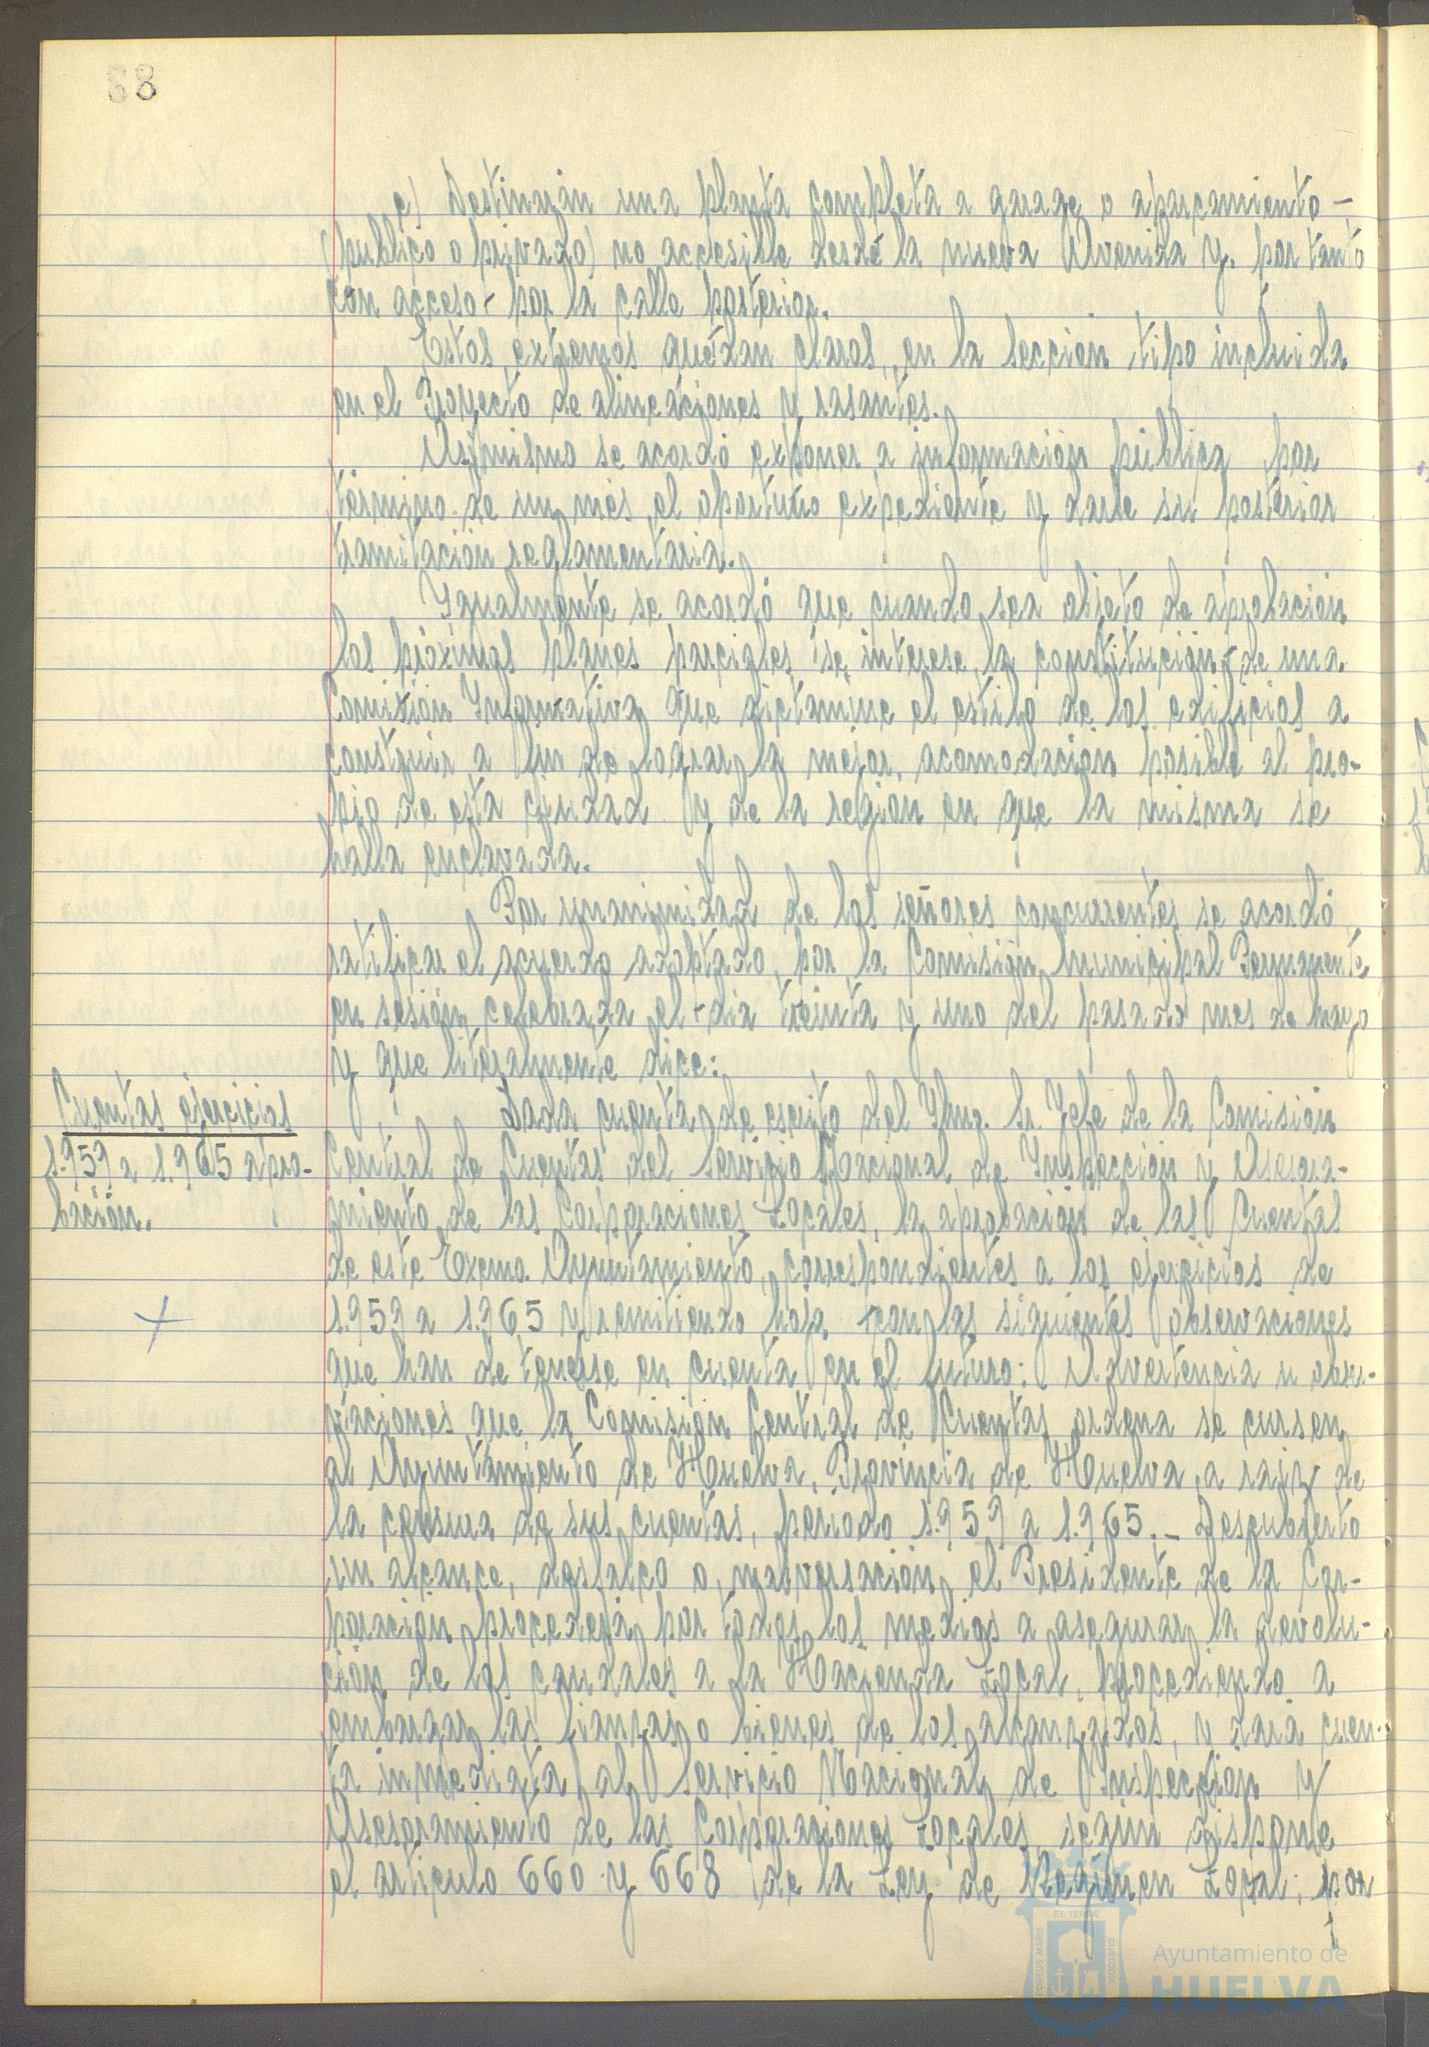 88
c) Destinarán una planta completa a garage o aparcamiento -
(publico o privado) no accesible desde la nueva Avenida y, por tanto
con acceso - por la calle posterior.
Estos extremos quedan claros, en la sección tipo incluida
en el Proyecto de alineaciones y rasantes.
Asimismo se acordó exponer a información pública por
término de un mes, el oportuno expediente y darle su posterior
tramitación reglamentaria.
Igualmente se acordó que cuando sea objeto de aprobación
los próximos planes parciales se interese la constitución de una
Comisión Informativa que dictamine el estilo de los edificios a
construir a fin de lograr la mejor acomodación posible al pro-
pio de esta ciudad y de la región en que la misma se
halla enclavada.
Por unanimidad de los señores concurrentes se acordó
ratificar el acuerdo adoptado, por la Comisión Municipal Permanente
en sesión celebrada el día treinta y uno del pasado mes de mayo
y que literalmente dice:
Cuentas ejercicios
1.959 a 1.965 apro-
bación.
Dada cuenta de escrito del Ilmo. Sr. Jefe de la Comisión
Central de Cuentas del Servicio Nacional de Inspección y Asesora-
miento de las Corporaciones Locales, la aprobación de las Cuentas
de este Excmo. Ayuntamiento, correspondientes a los ejercicios de
1.959 a 1.965 y remitiendo hoja con las siguientes observaciones
que han de tenerse en cuenta en el futuro: Advertencia u obser-
vaciones que la Comisión Central de Cuentas ordena se cursen
al Ayuntamiento de Huelva, Provincia de Huelva, a raiz de
la censura de sus cuentas, periodo 1.959 a 1.965. - Descubierto
un alcance, desfalco o malversación, el Presidente de la Cor-
poración procederá por todos los medios a asegurar la devolu-
ción de los caudales a la Hacienda Local, procediendo a
embargar las fianzas o bienes de los alcanzados, y dará cuen-
ta inmediata al Servicio Nacional de Inspección y
Asesoramiento de las Corporaciones Locales, según dispone
el artículo 660 y 668 de la Ley de Régimen Local; por
PORTUS MARIS
ET TERRAE
CUSTODIA
Ayuntamiento de
HUELVA